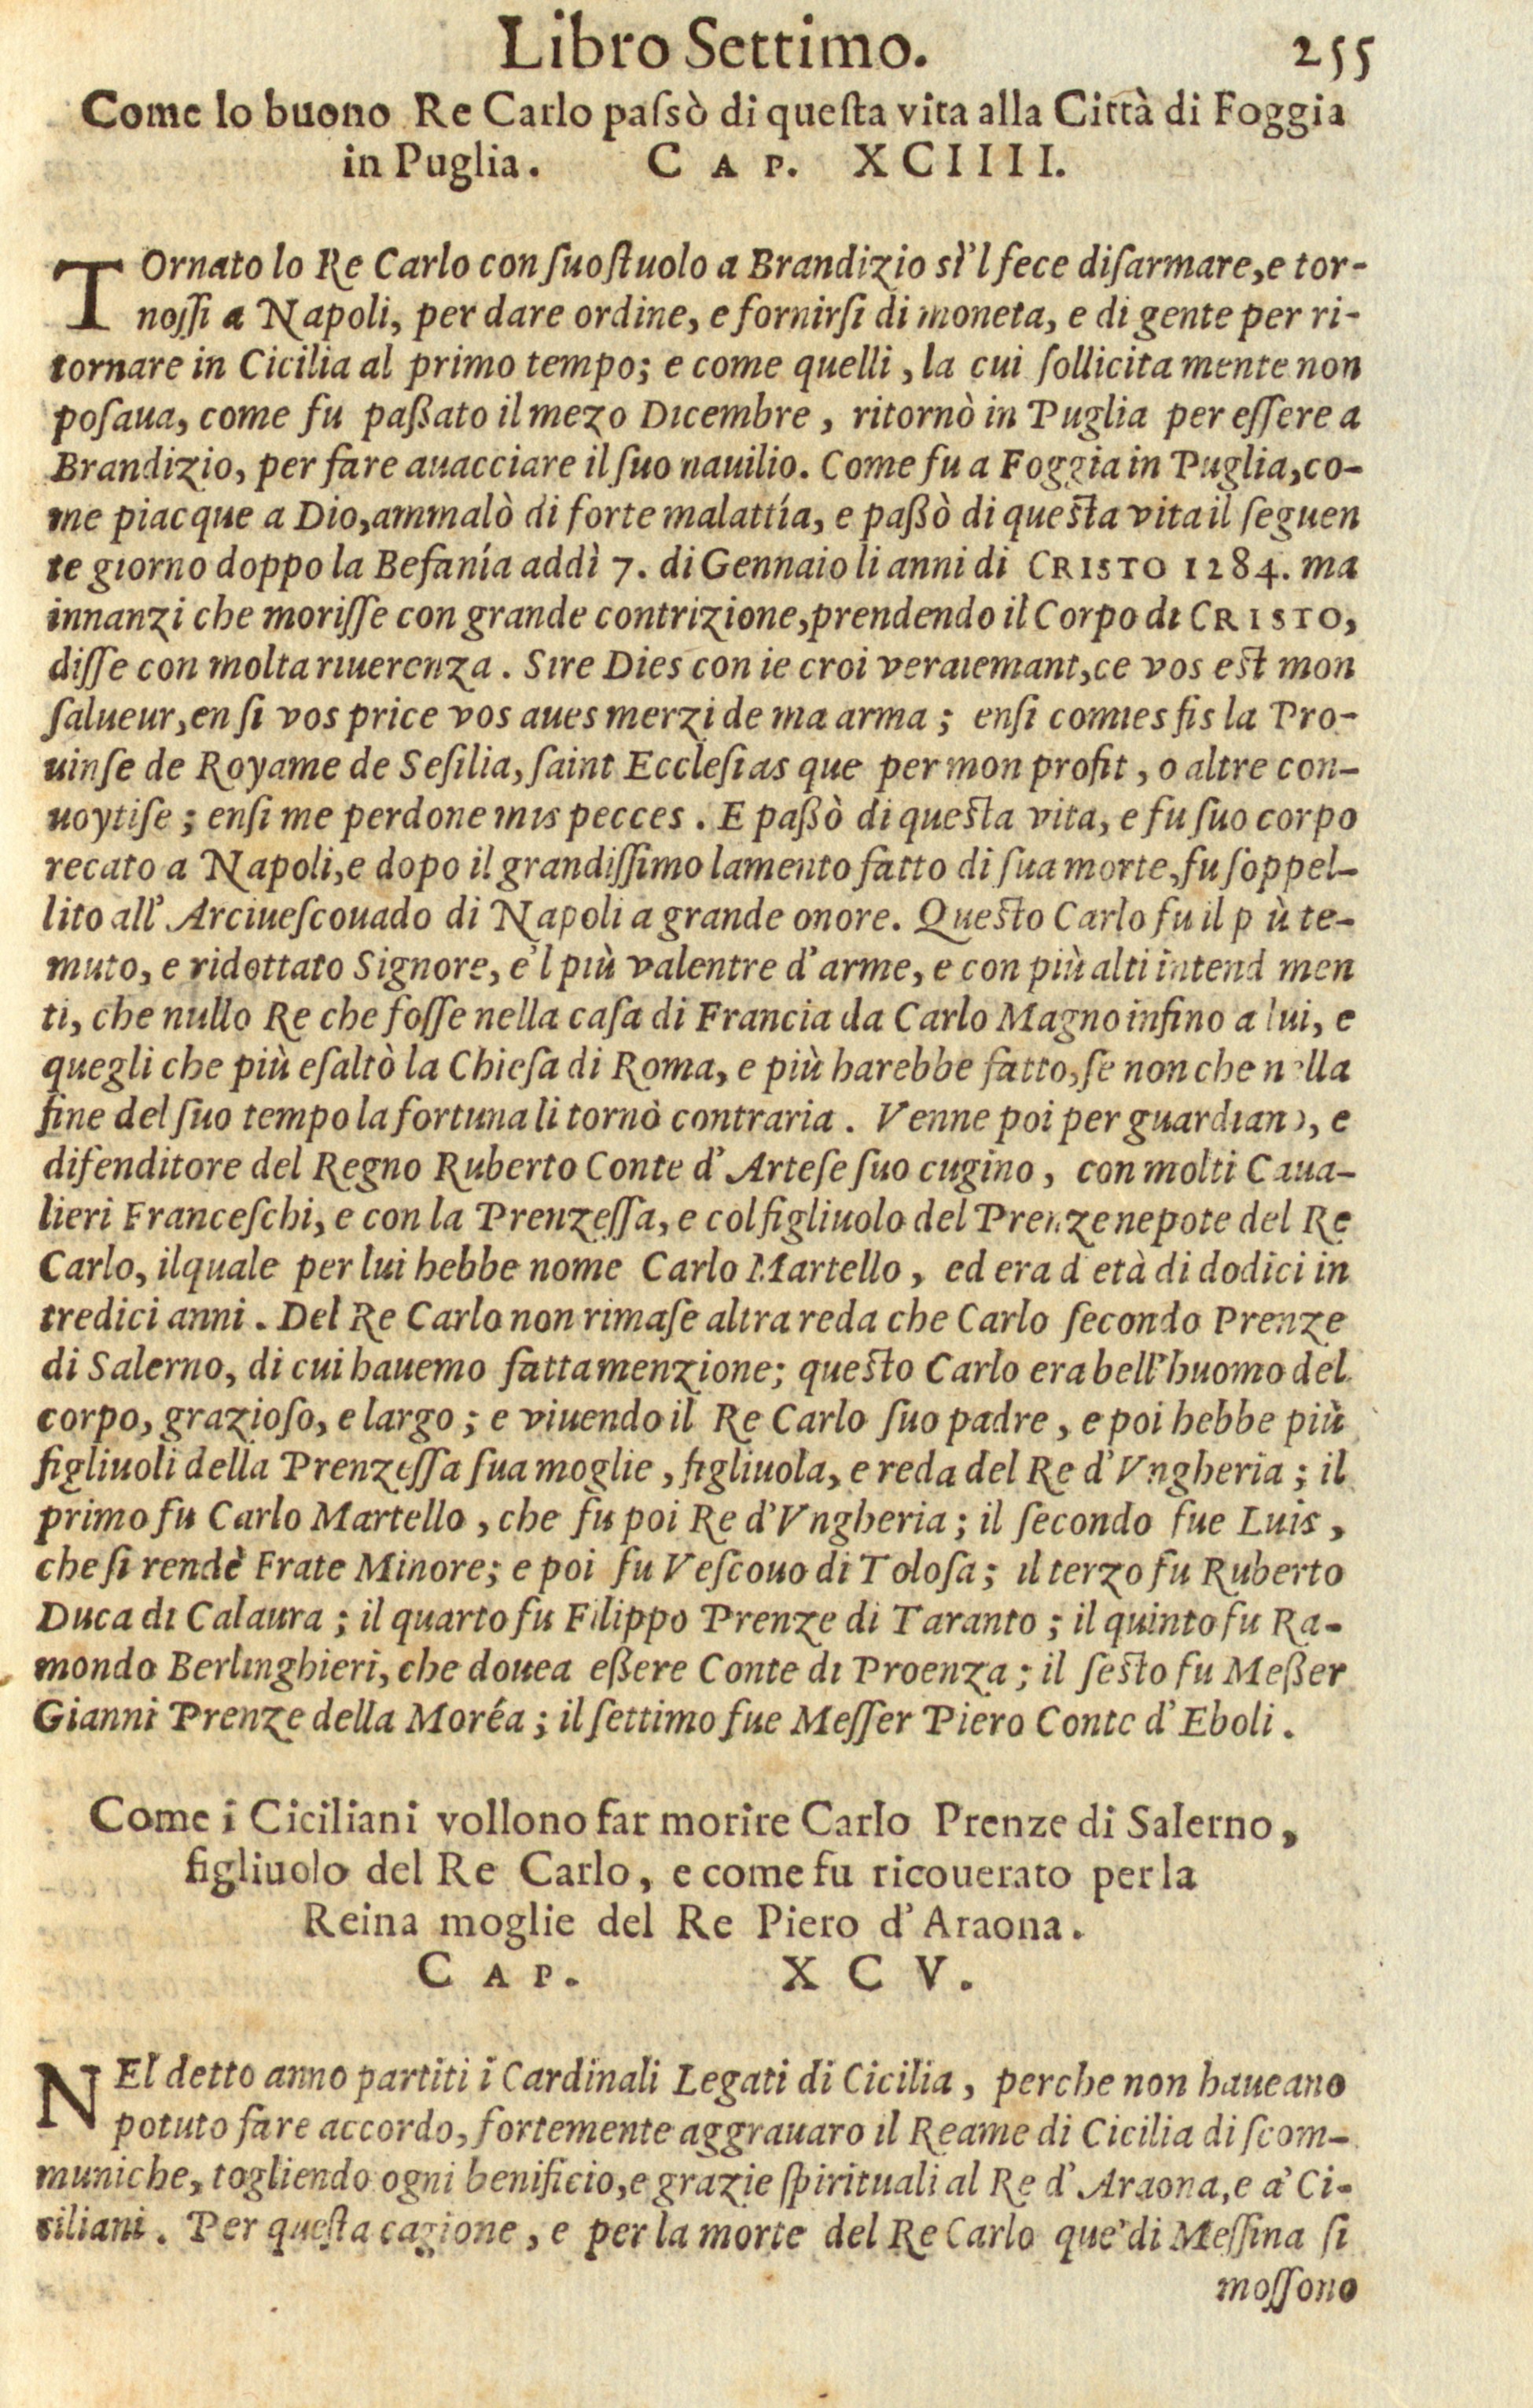 Libro Settimo. 255
Come lo buono Re Carlo paſsò di queſta vita alla Città di Foggia
in Puglia. CAP. XCIIII.
TOrnato lo Re Carlo con ſuo ſtuolo a Brandizio sì'l fece diſarmare, e tor-
noſſi a Napoli, per dare ordine, e fornirſi di moneta, e di gente per ri-
tornare in Cicilia al primo tempo; e come quelli, la cui ſollicita mente non
poſaua, come fu paßato il mezo Dicembre, ritornò in Puglia per eſſere a
Brandizio, per fare auacciare il ſuo nauilio. Come fu a Foggia in Puglia, co-
me piacque a Dio, ammalò di forte malattía, e paßò di queſta vita il ſeguen
te giorno doppo la Befanía addì 7. di Gennaio li anni di CRISTO 1284. ma
innanzi che moriſſe con grande contrizione, prendendo il Corpo di CRISTO,
diſſe con molta riuerenza. Sire Dies con ie croi veraiemant, ce vos eſt mon
ſalueur, en ſi vos price vos aues merzi de ma arma; enſi comies fis la Pro-
uinſe de Royame de Seſilia, ſaint Eccleſias que per mon profit, o altre con-
uoytiſe; enſi me perdone mis pecces. E paßò di queſta vita, e fu ſuo corpo
recato a Napoli, e dopo il grandiſſimo lamento fatto di ſua morte, fu ſoppel-
lito all' Arciueſcouado di Napoli a grande onore. Queſto Carlo fu il p ù te-
muto, e ridottato Signore, e'l più valentre d'arme, e con più alti intend men
ti, che nullo Re che foſſe nella caſa di Francia da Carlo Magno infino a lui, e
quegli che più eſaltò la Chieſa di Roma, e più harebbe fatto, ſe non che nella
fine del ſuo tempo la fortuna li tornò contraria. Venne poi per guardiano, e
difenditore del Regno Ruberto Conte d'Arteſe ſuo cugino, con molti Caua-
lieri Franceſchi, e con la Prenzeſſa, e col figliuolo del Prenze nepote del Re
Carlo, ilquale per lui hebbe nome Carlo Martello, ed era d età di dodici in
tredici anni. Del Re Carlo non rimaſe altra reda che Carlo ſecondo Prenze
di Salerno, di cui hauemo fatta menzione; queſto Carlo era bell'huomo del
corpo, grazioſo, e largo; e viuendo il Re Carlo ſuo padre, e poi hebbe più
figliuoli della Prenzeſſa ſua moglie, figliuola, e reda del Re d'Vngheria; il
primo fu Carlo Martello, che fu poi Re d'Vngheria; il ſecondo fue Luis,
che ſi rendè Frate Minore; e poi fu Veſcouo di Toloſa; il terzo fu Ruberto
Duca di Calaura; il quarto fu Filippo Prenze di Taranto; il quinto fu Ra-
mondo Berlinghieri, che douea eßere Conte di Proenza; il ſeſto fu Meßer
Gianni Prenze della Moréa; il ſettimo fue Meſſer Piero Conte d'Eboli.
Come i Ciciliani vollono far morire Carlo Prenze di Salerno,
figliuolo del Re Carlo, e come fu ricouerato per la
Reina moglie del Re Piero d'Araona.
CAP. XCV.
NEl detto anno partiti i Cardinali Legati di Cicilia, perche non haueano
potuto fare accordo, fortemente aggrauaro il Reame di Cicilia di ſcom-
muniche, togliendo ogni benificio, e grazie ſpirituali al Re d'Araona, e a' Ci-
ciliani. Per queſta cagione, e per la morte del Re Carlo que' di Meſſina ſi
moſſono